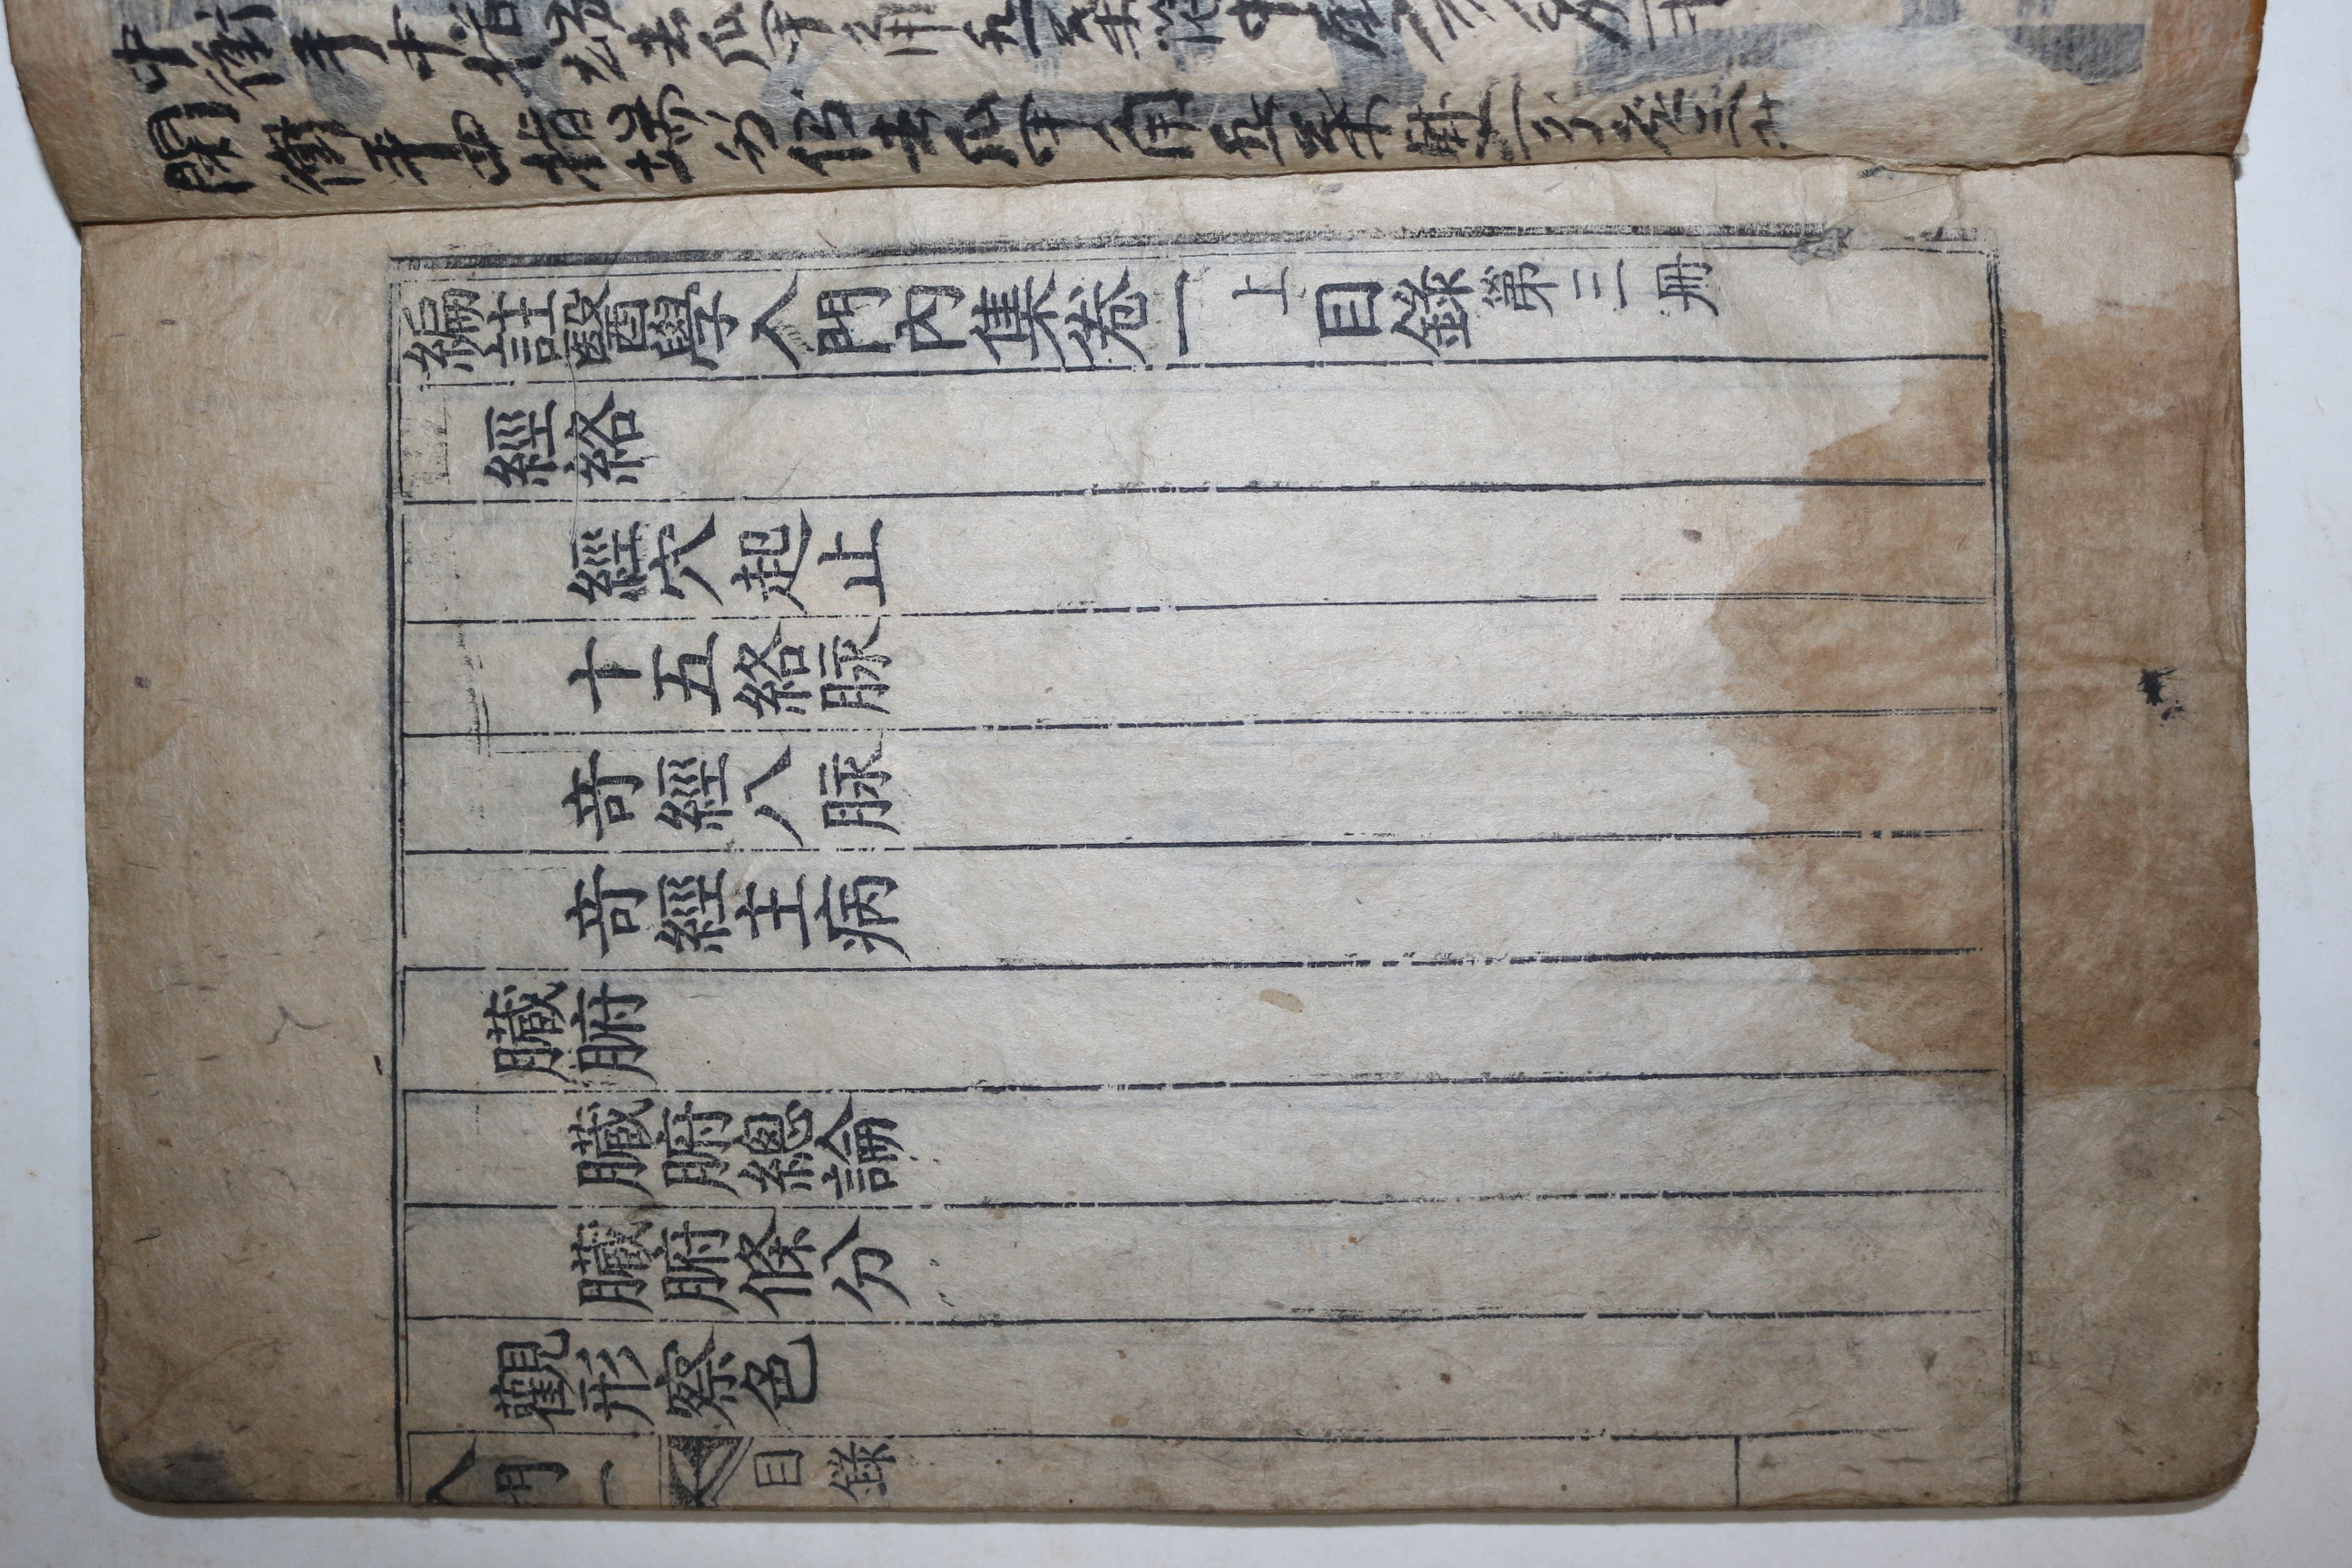 中衝手中指去爪甲角
衝手四指端外去爪甲角
編註醫學入門內集卷一上目錄第三冊
經絡
經穴起止
十五絡脉
竒經八脉
竒經主病
臟腑
臟腑總論
臟腑條分
觀形察色
入門一 目錄